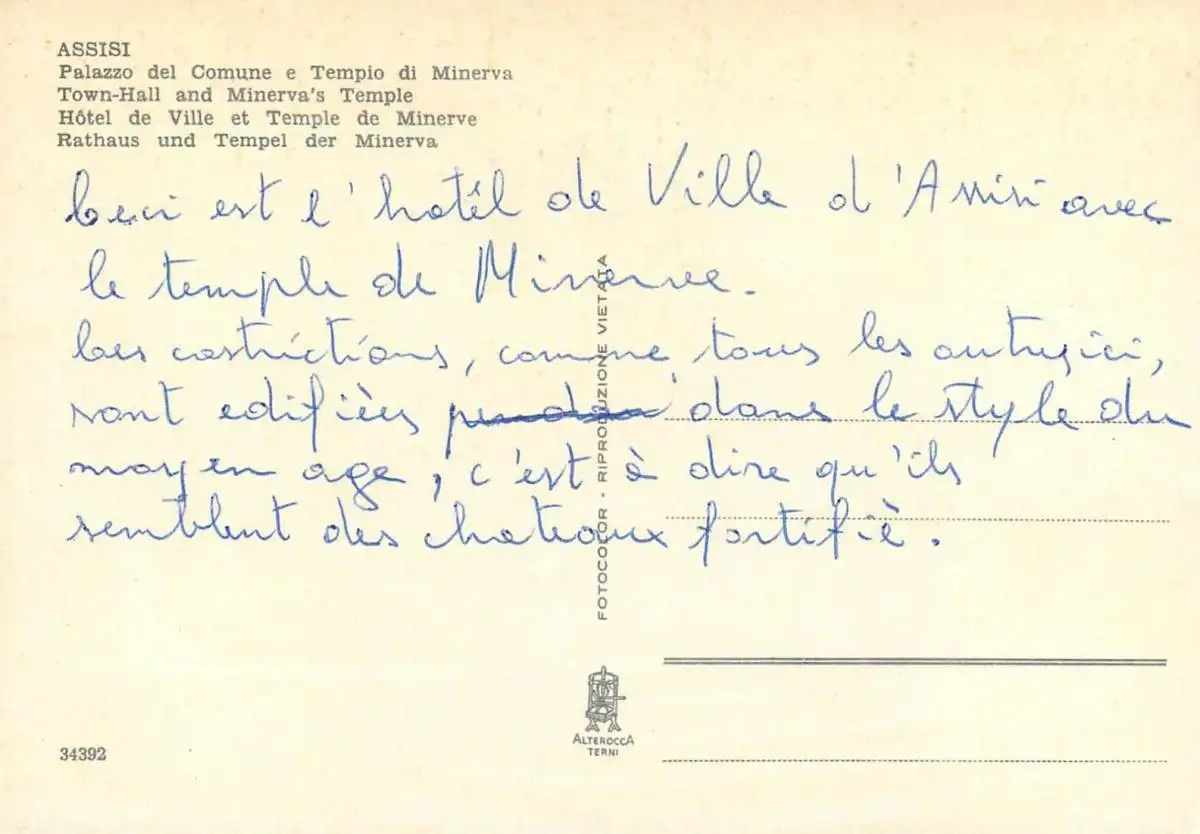 ASSISI
Palazzo del Comune e Tempio di Minerva
Town-Hall and Minerva's Temple
Hôtel de Ville et Temple de Minerve
Rathaus und Tempel der Minerva
Ceci est l'hotêl de Ville d'Assisi avec
le temple de Minerve.
Les costrictions, comme tous les autres ici,
sont edifièes dans le style du
moyen age, c'est à dire qu'ils
semblent des chateaux fortifiè.
FOTOCOLOR - RIPRODUZIONE VIETATA
ALTEROCCA
TERNI
34392